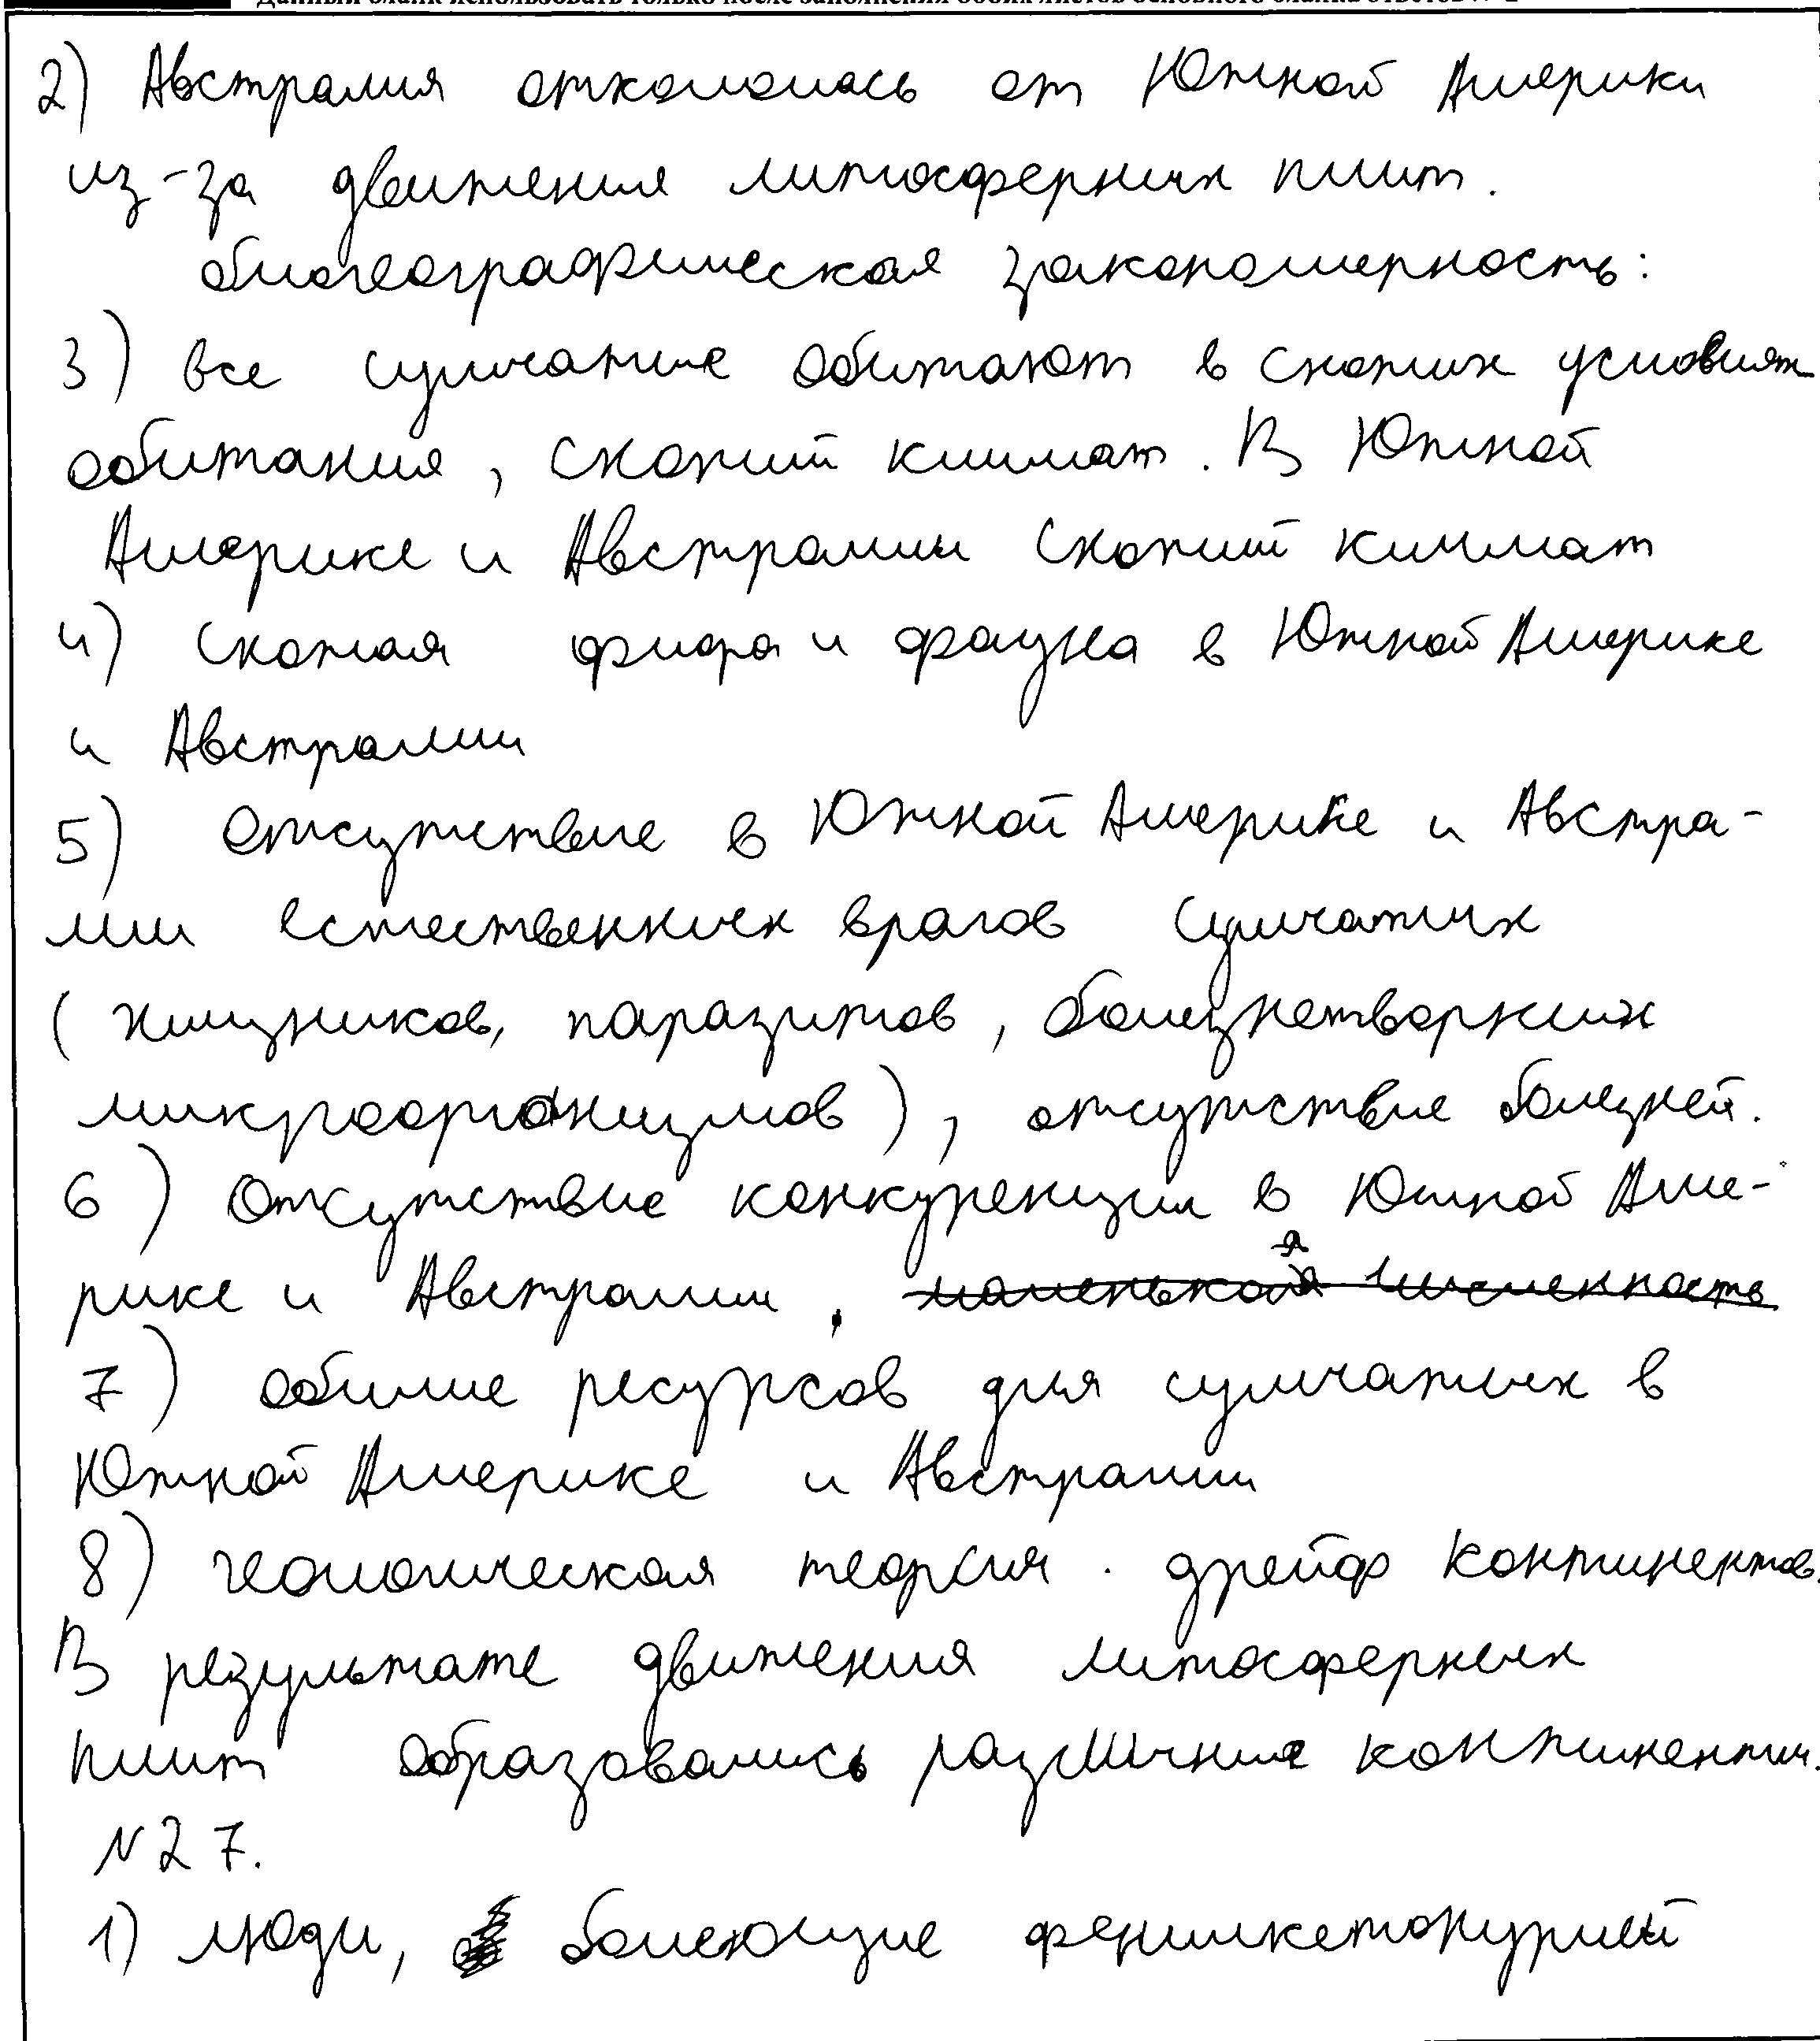 Данный бланк использовать только после заполнения обоих листов основного бланка ответов № 2
2) Австралия откололась от Южной Америки
из-за движения литосферных плит.
биогеографическая закономерность:
3) все сумчатые обитают в схожих условиях
обитания, схожий климат. В Южной
Америке и Австралии схожий климат
4) схожая флора и фауна в Южной Америке
и Австралии
5) отсутствие в Южной Америке и Австра-
лии естественных врагов сумчатых
(хищников, паразитов, болезнетворных
микроорганизмов), отсутствие болезней.
6) Отсутствие конкуренции в Южной Аме-
рике и Австралии. маленькая численность
7) обилие ресурсов для сумчатых в
Южной Америке и Австралии
8) геологическая теория. дрейф континентов.
В результате движения литосферных
плит образовались различные континенты.
№27.
1) люди, болеющие фенилкетонурией